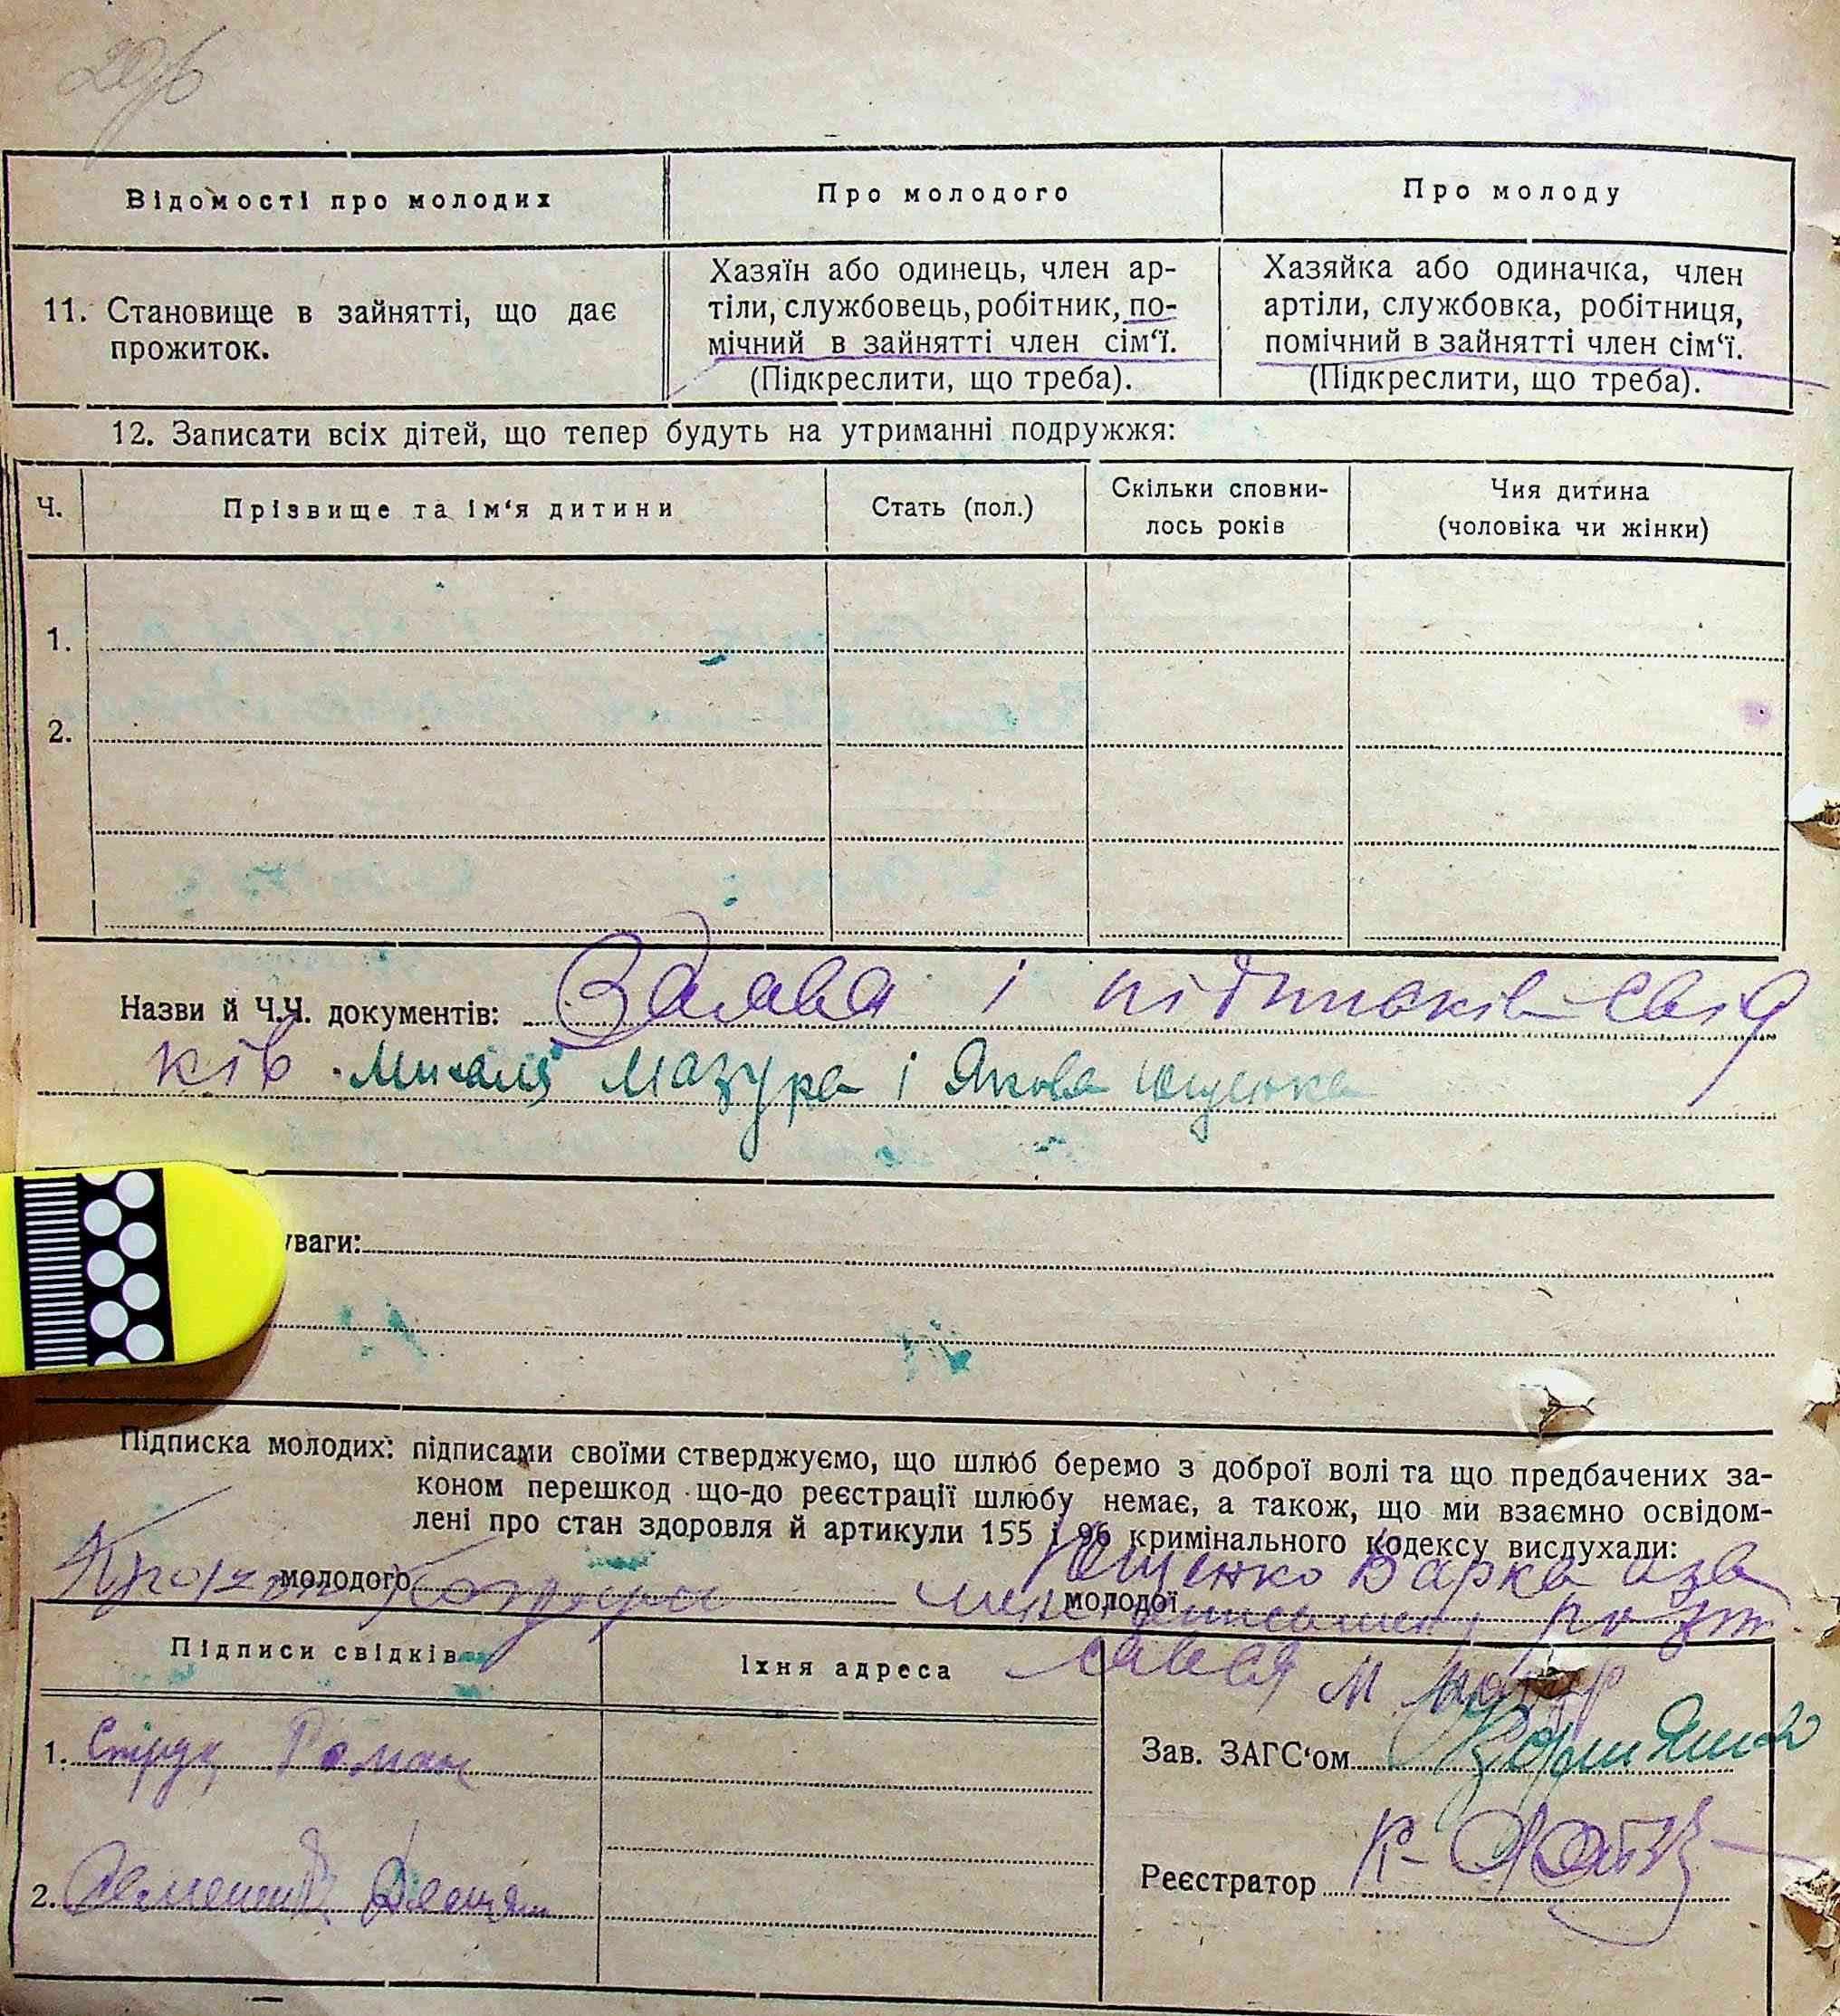 Відомості про молодих
Про молодого
Про молоду
11. Становище в зайнятті, що дає
прожиток.
Хазяїн або одинець, член ар-
тіли, службовець, робітник, по-
мічний в зайнятті член сім‘ї.
(Підкреслити, що треба).
Хазяйка або одиначка, член
артіли, службовка, робітниця,
помічний в зайнятті член сім‘ї.
(Підкреслити, що треба).
12. Записати всіх дітей, що тепер будуть на утриманні подружжя:
Ч.
Прізвище та ім‘я дитини
Стать (пол.)
Скільки сповни-
лось років
Чия дитина
(чоловіка чи жінки)
1.
2.
Назви й Ч.Ч. документів: Заява і підписків свід
ків Мазура і Якова Ющенка
уваги:
Підписка молодих: підписами своїми стверджуємо, що шлюб беремо з доброї волі та що предбачених за-
коном перешкод що-до реєстрації шлюбу немає, а також, що ми взаємно освідом-
лені про стан здоровля й артикули 155 і 96 кримінального кодексу вислухали:
молодого
молодої Ющенко Варка а за
роз
М Мазур
Підписи свідків
Їхня адреса
1. Роман
2.
Зав. ЗАГС‘ом
Реєстратор